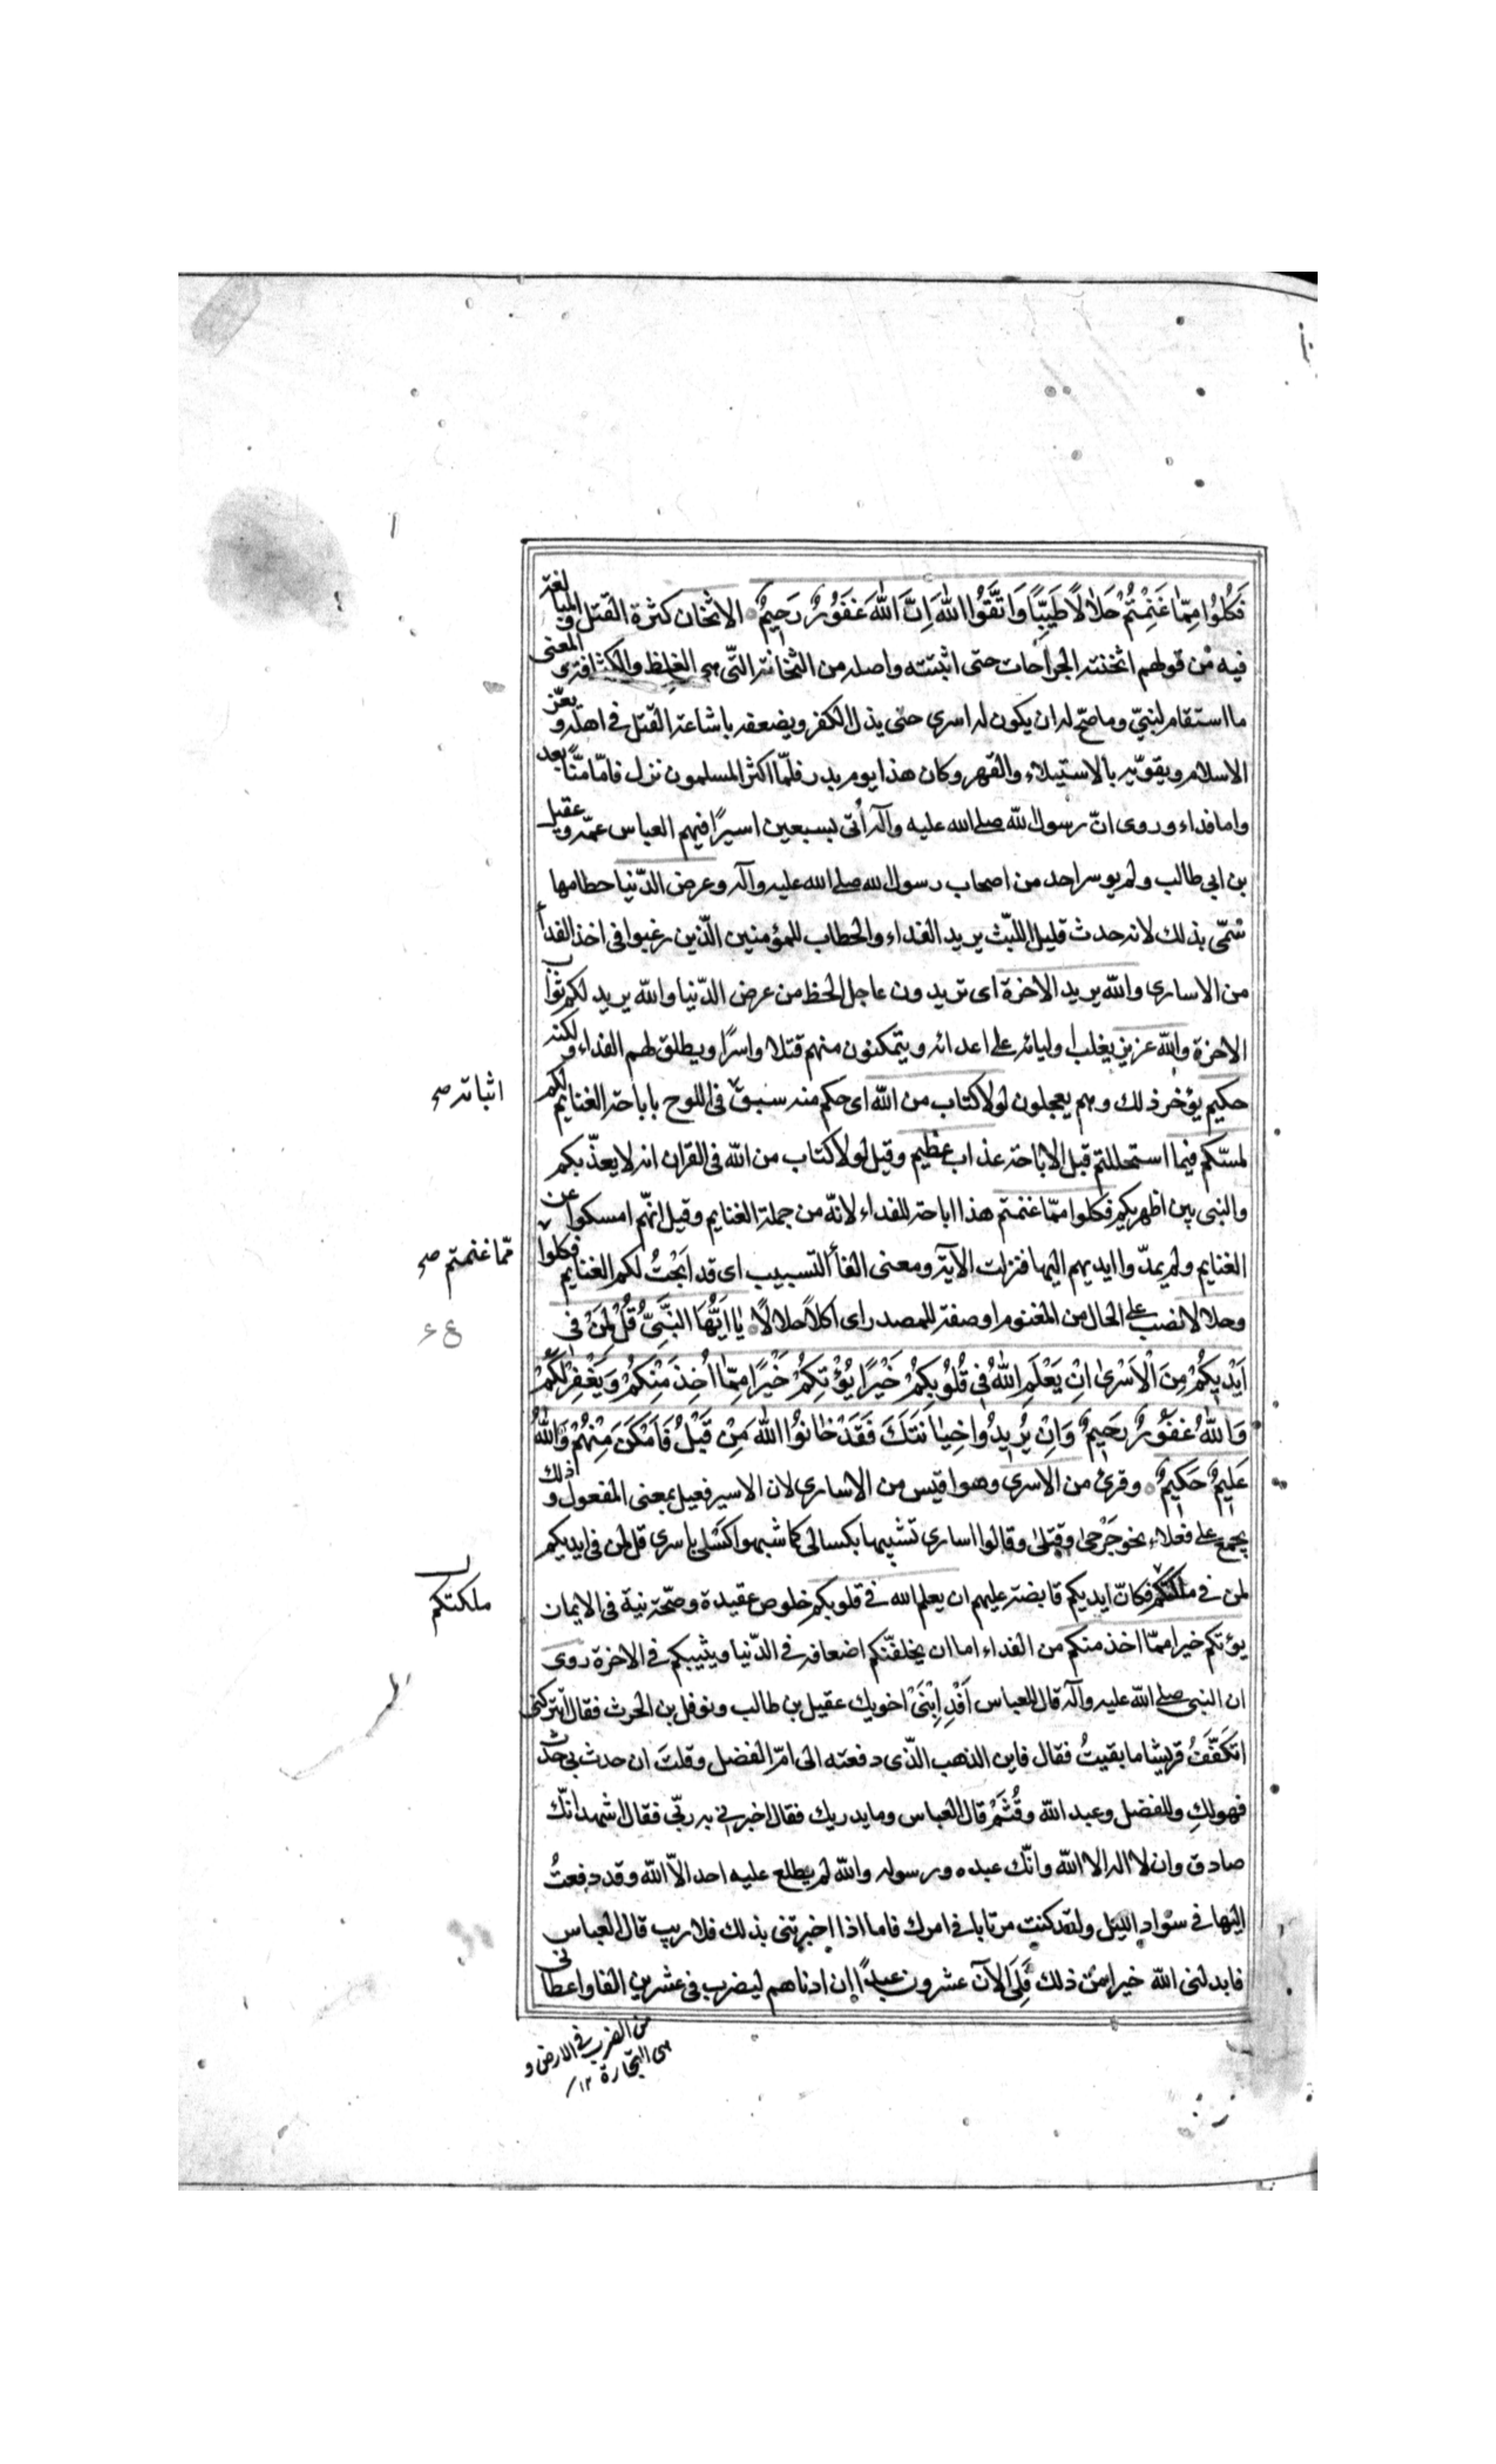 فَكُلُوا مِمَّا غَنِمْتُمْ حَلَالًا طَيِّبًا وَاتَّقُوا اللَّهَ اِنَّ اللَّهَ غَفُورٌ رَحِيمٌ الاثخان كثرة القتل والمبالغة
فيه من قولهم اثخنته الجراحات حتى اثبتته واصله من الثخانة التّى هى الغلظ والكثافة والمعنى
ما استقام لنبىّ وما صحّ له ان يكون له اسرى حتى يذل الكفر ويضعفه باشاعة القتل فى اهله ويعزّ
الاسلام ويقوّيه بالاستيلاء والقهر وكان هذا يوم بدر فلمّا اكثر المسلمون نزل فامّا منًّا بعد
واما فداء وروى انّ رسول الله صلى الله عليه وآله أتى بسبعين اسيرًا فيهم العباس عمّه وعقيل
بن ابى طالب ولم يوسر احد من اصحاب رسول الله صلى الله عليه وآله وعرض الدّنيا حطامها
سُمّى بذلك لانه حدث قليل اللبّث يريد الفداء والخطاب للمؤمنين الّذين رغبوا فى اخذ الفدأ
من الاسارى والله يريد الاخرة اى تريدون عاجل الحظ من عرض الدّنيا والله يريد لكم ثواب
الاخرة والله عزيز يغلب اوليائه على اعدائه ويتمكنون منهم قتلا واسرًا ويطلق لهم الفداء ولكنه
حكيم يؤخر ذلك وهم يعجلون لولا كتاب من الله اى حكم منه سبق فى اللوح باباحة الغنايم لكم
اثباته صح
لمسّكم فيما استحللتم قبل الاباحة عذاب عظيم وقيل لولا كتاب من الله فى القران انه لا يعذّبكم
والنبى بين اظهركم فكلوا ممّا غنمتم هذا اباحة للفداء لانّه من جملة الغنايم وقيل انّهم امسكوا عن
الغنايم ولم يمدّوا ايديهم اليها فنزلت الآية ومعنى الفأ التسبيب اى قد ابَحْتُ لكم الغنايم فكلوا
ممّا غنمتم صح
وحلالا نصب على الحال من المغنوم او صفة للمصدر اى اكلاً حلالًا يَا اَيُّهَا النَّبِىُّ قُلْ لِمَنْ فِى
ع ٤
اَيْدِيكُمْ مِنَ الْاَسْرىٰ اِنْ يَعْلَمِ اللّٰهُ فِى قُلُوبِكُمْ خَيْرًا يُؤْتِكُمْ خَيْرًا مِمَّا اُخِذَ مِنْكُمْ وَيَغْفِرْ لَكُمْ
وَاللّٰهُ غَفُورٌ رَحِيمٌ وَاِنْ يُرِيدُوا خِيَانَتَكَ فَقَدْ خَانُوا اللّٰهَ مِنْ قَبْلُ فَاَمْكَنَ مِنْهُمْ وَاللّٰهُ
عَلِيمٌ حَكِيمٌ وقرئ من الاسرى وهو اقيس من الاسارى لان الاسير فعيل بمعنى المفعول وذلك
يجمع على فعلاء نحو جَرْحى وقتلى وقالوا اسارى تشبيها بكسالى كما شبهوا كَسْلى باسرى قل لمن فى ايديكم
لمن فى ملكتكم فكانّ ايديكم قابضة عليهم ان يعلم الله فى قلوبكم خلوص عقيدة وصحّة نية فى الايمان
ملكتكم
يؤتكم خيرا ممّا اخذ منكم من الفداء اما ان يخلفّنكم اضعافه فى الدّنيا ويثيبكم فى الاخرة روى
ان النبى صلى الله عليه وآله قال للعباس اَفْدِ اِبْنَىْ اخويك عقيل بن طالب ونوفل بن الحرث فقال اتتركنى
اتكَفَّفُ قريشا ما بقيتُ فقال فاين الذهب الّذى دفعته الى امّ الفضل وقلتَ ان حدث بى حدث
فهو لكِ وللفضل وعبد الله وقُثَمْ قال العباس وما يدريك فقال اخبرنى به ربّى فقال اشهد انّك
صادق وان لا اله الا الله وانّك عبده ورسوله والله لم يطلع عليه احد الاّ الله وقد دفعتُ
اليها فى سواد الليل ولقد كنت مرتابا فى امرك فاما اذا اخبرتنى بذلك فلا ريب قال العباس
فابدلنى الله خيرا من ذلك فَلِىَ الآن عشرون عبدًا ان ادناهم ليضرب فى عشرين الفا واعطانى
من الضرب فى الارض و
هى التجارة ١٢